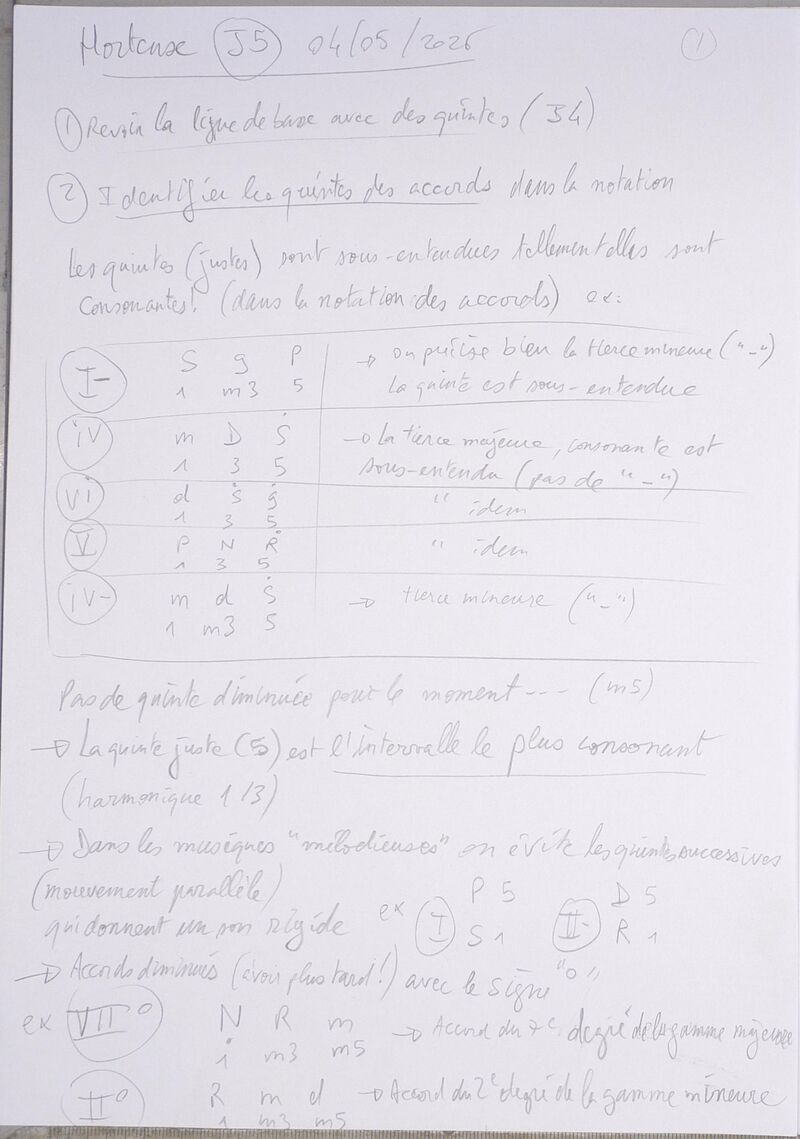 Hortense J5 04/05/2026
1
① Revoir la ligne de basse avec des quintes (J4)
② Identifier les quintes des accords dans la notation
Les quintes (justes) sont sous-entendues tellement elles sont
consonantes! (dans la notation des accords) ex:
I- S g P → on précise bien la tierce mineure ("-")
1 m3 5 La quinte est sous-entendue
iv m D Ṡ → La tierce majeure, consonante est
1 3 5 sous-entendu (pas de "-")
vi d ṡ ġ " idem
1 3 5
V P N Ṙ " idem
1 3 5
iv- m d Ṡ → tierce mineure ("-")
1 m3 5
Pas de quinte diminuée pour le moment --- (m5)
→ La quinte juste (5) est l'intervalle le plus consonant
(harmonique 1/3)
→ Dans les musiques "mélodieuses" on évite les quintes successives
(mouvement parallèle)
qui donnent un son rigide ex I P 5 II- D 5
S 1 R 1
→ Accords diminués (à voir plus tard!) avec le signe "o"
ex VII° N R m → Accord du 7e degré de la gamme majeure
1 m3 m5
II° R m d → Accord du 2e degré de la gamme mineure
1 m3 m5